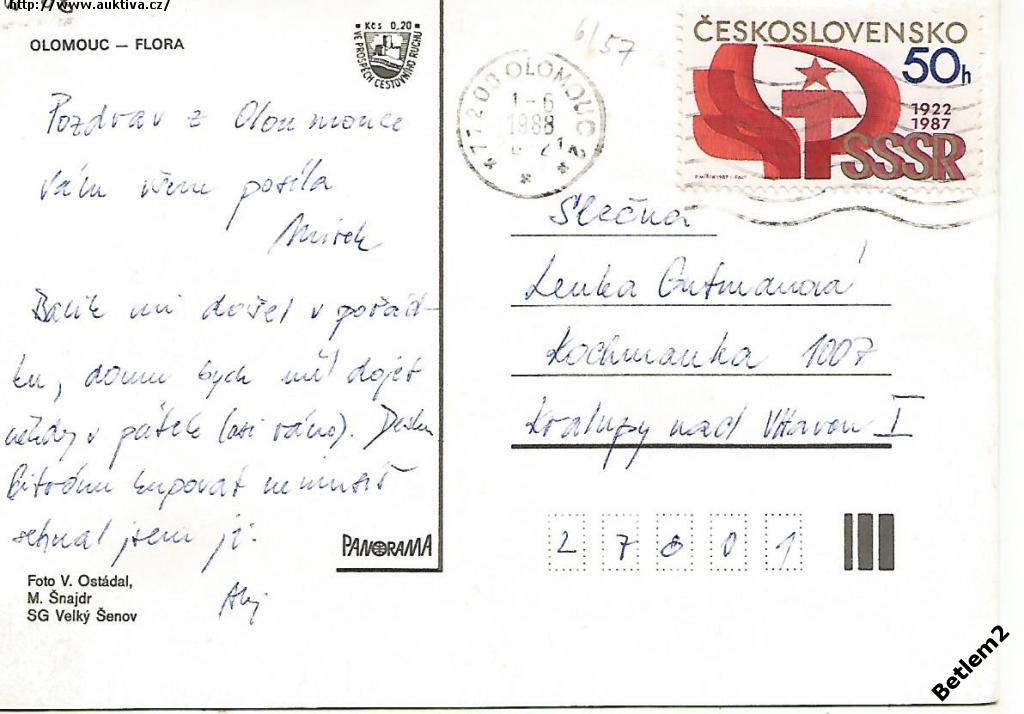 http://www.auktiva.cz/
OLOMOUC — FLORA
Kčs 0,20
VE PROSPĚCH CESTOVNÍHO RUCHU
Pozdrav z Olomouce
Vám všem posílá
Mirek
Balík mi došel v pořád-
ku, domu bych měl dojet
někdy v pátek (asi ráno). Desku
kupovat nemusíš
sehnal jsem ji.
Ahoj
PANORAMA
Foto V. Ostádal,
M. Šnajdr
SG Velký Šenov
6/57
772 00 OLOMOUC 2
1-6
1988
ČESKOSLOVENSKO
50h
1922
1987
SSSR
Slečna
Lenka Gutmanová
Kochmanka 1007
Kralupy nad Vltavou I
27801
Betlem2